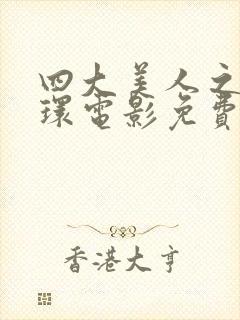 四大美人之
環電影免費
香港大亨